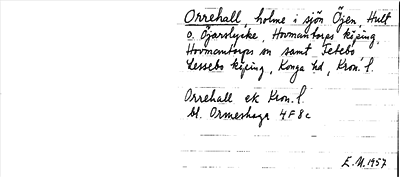 Orrehall, holme i sjön Öjen, Hult
o. Ojarslycke, Hovmantorps köping,
Hovmantorps sn samt Tetebo
Lessebo köping, Konga hd, Kron. l.
Orrehall ek Kron. l.
bl. Ormeshaga 4 F 8 c
E. N. 1957